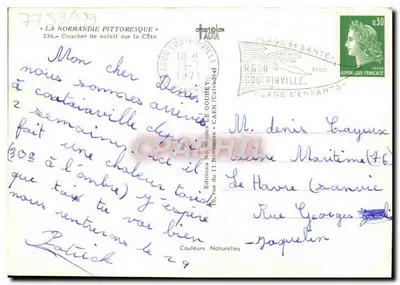 7757/99
"LA NORMANDIE PITTORESQUE"
336. - Coucher de soleil sur la Côte
Mon cher Denis,
nous sommes arrivés
à coutainville depuis
2 semaines, ici il
fait une chaleur torride
(30° à l'ombre) j'espère
que toi tu vas bien
nous rentrerons le 29
Patrick
Editions Normandes LE GOUBEY
10, rue du 11 Novembre - CAEN (Calvados)
Couleurs Naturelles
COUTAINVILLE
18 H
1971
PLAGE DE SANTÉ
AGON
COUTAINVILLE
PLAGE D'ENFANTS
0,30
REPUBLIQUE FRANÇAISE
M. denis
Seine Maritime (76)
Le Havre (Sanvic
Rue Georges
Jaquelin